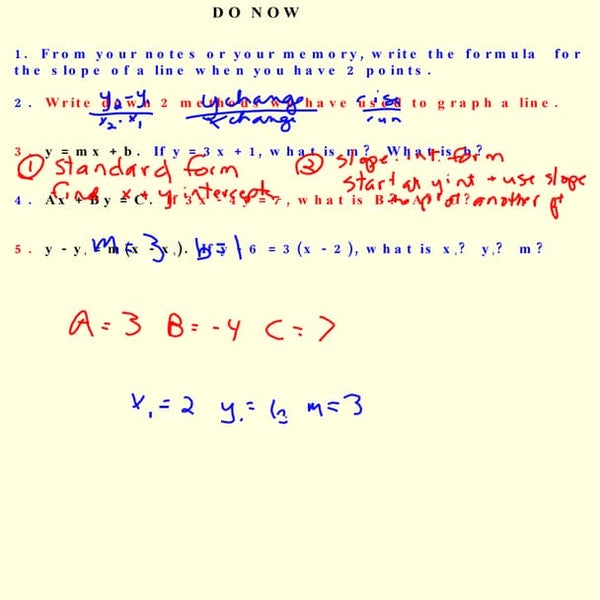 DO NOW
1. From your notes or your memory, write the formula for
the slope of a line when you have 2 points.
y₂-y₁ / x₂-x₁ y change / x change rise / run
2. Write down 2 methods we have used to graph a line.
3. y = mx + b. If y = 3x + 1, what is m? What is b?
① standard form ② slope. int. form
find x + y intercepts start at y int + use slope
to plot another pt
4. Ax + By = C. If 3x - 4y = 7, what is B? A? C?
5. y - y₁ = m(x - x₁). If y - 6 = 3(x - 2), what is x₁? y₁? m?
m = 3 b = 1
A = 3 B = -4 C = 7
x₁ = 2 y₁ = 6 m = 3